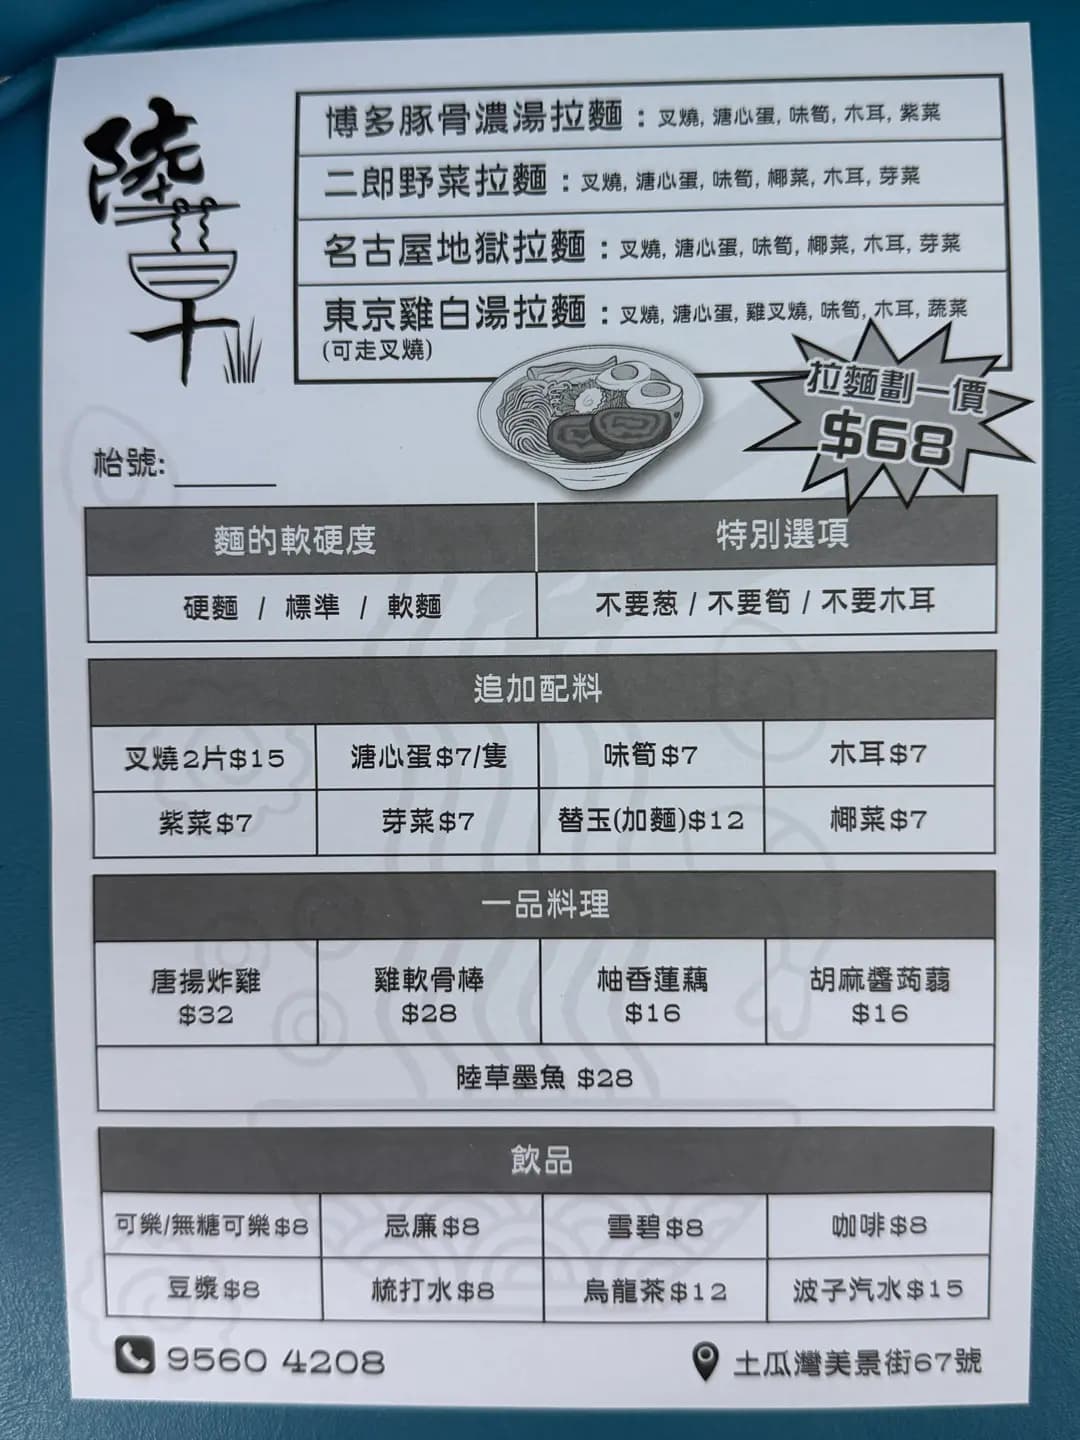 陸草
博多豚骨濃湯拉麵：叉燒, 溏心蛋, 味筍, 木耳, 紫菜
二郎野菜拉麵：叉燒, 溏心蛋, 味筍, 椰菜, 木耳, 芽菜
名古屋地獄拉麵：叉燒, 溏心蛋, 味筍, 椰菜, 木耳, 芽菜
東京雞白湯拉麵：叉燒, 溏心蛋, 雞叉燒, 味筍, 木耳, 蔬菜
(可走叉燒)
拉麵劃一價
$68
枱號:
麵的軟硬度
特別選項
硬麵 / 標準 / 軟麵
不要葱 / 不要筍 / 不要木耳
追加配料
叉燒2片$15
溏心蛋$7/隻
味筍$7
木耳$7
紫菜$7
芽菜$7
替玉(加麵)$12
椰菜$7
一品料理
唐揚炸雞
$32
雞軟骨棒
$28
柚香蓮藕
$16
胡麻醬蒟蒻
$16
陸草墨魚 $28
飲品
可樂/無糖可樂$8
忌廉$8
雪碧$8
咖啡$8
豆漿$8
梳打水$8
烏龍茶$12
波子汽水$15
9560 4208
土瓜灣美景街67號